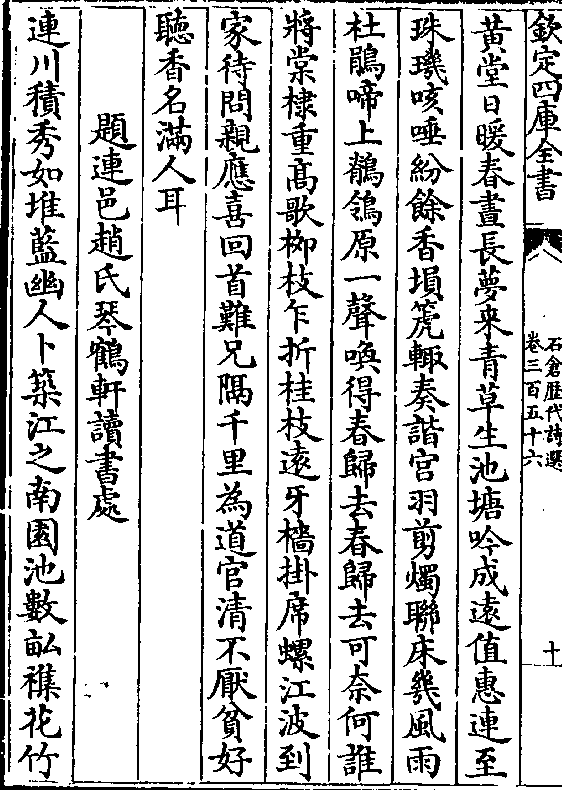 欽定四庫全書
石倉歷代詩選
卷三百五十六
十
黄堂日暖春晝長夢來青草生池塘吟成遠值惠連至
珠璣咳唾紛餘香塤箎輙奏諧宫羽剪燭聯床幾風雨
杜鵑啼上鶺鴒原一聲喚得春歸去春歸去可奈何誰
將棠棣重髙歌栁枝乍折桂枝遠牙檣掛席螺江波到
家待問親應喜回首難兄隔千里為道官清不厭貧好
聽香名滿人耳
題連邑趙氏琴鶴軒讀書處
連川積秀如堆藍幽人卜築江之南園池數畝襍花竹